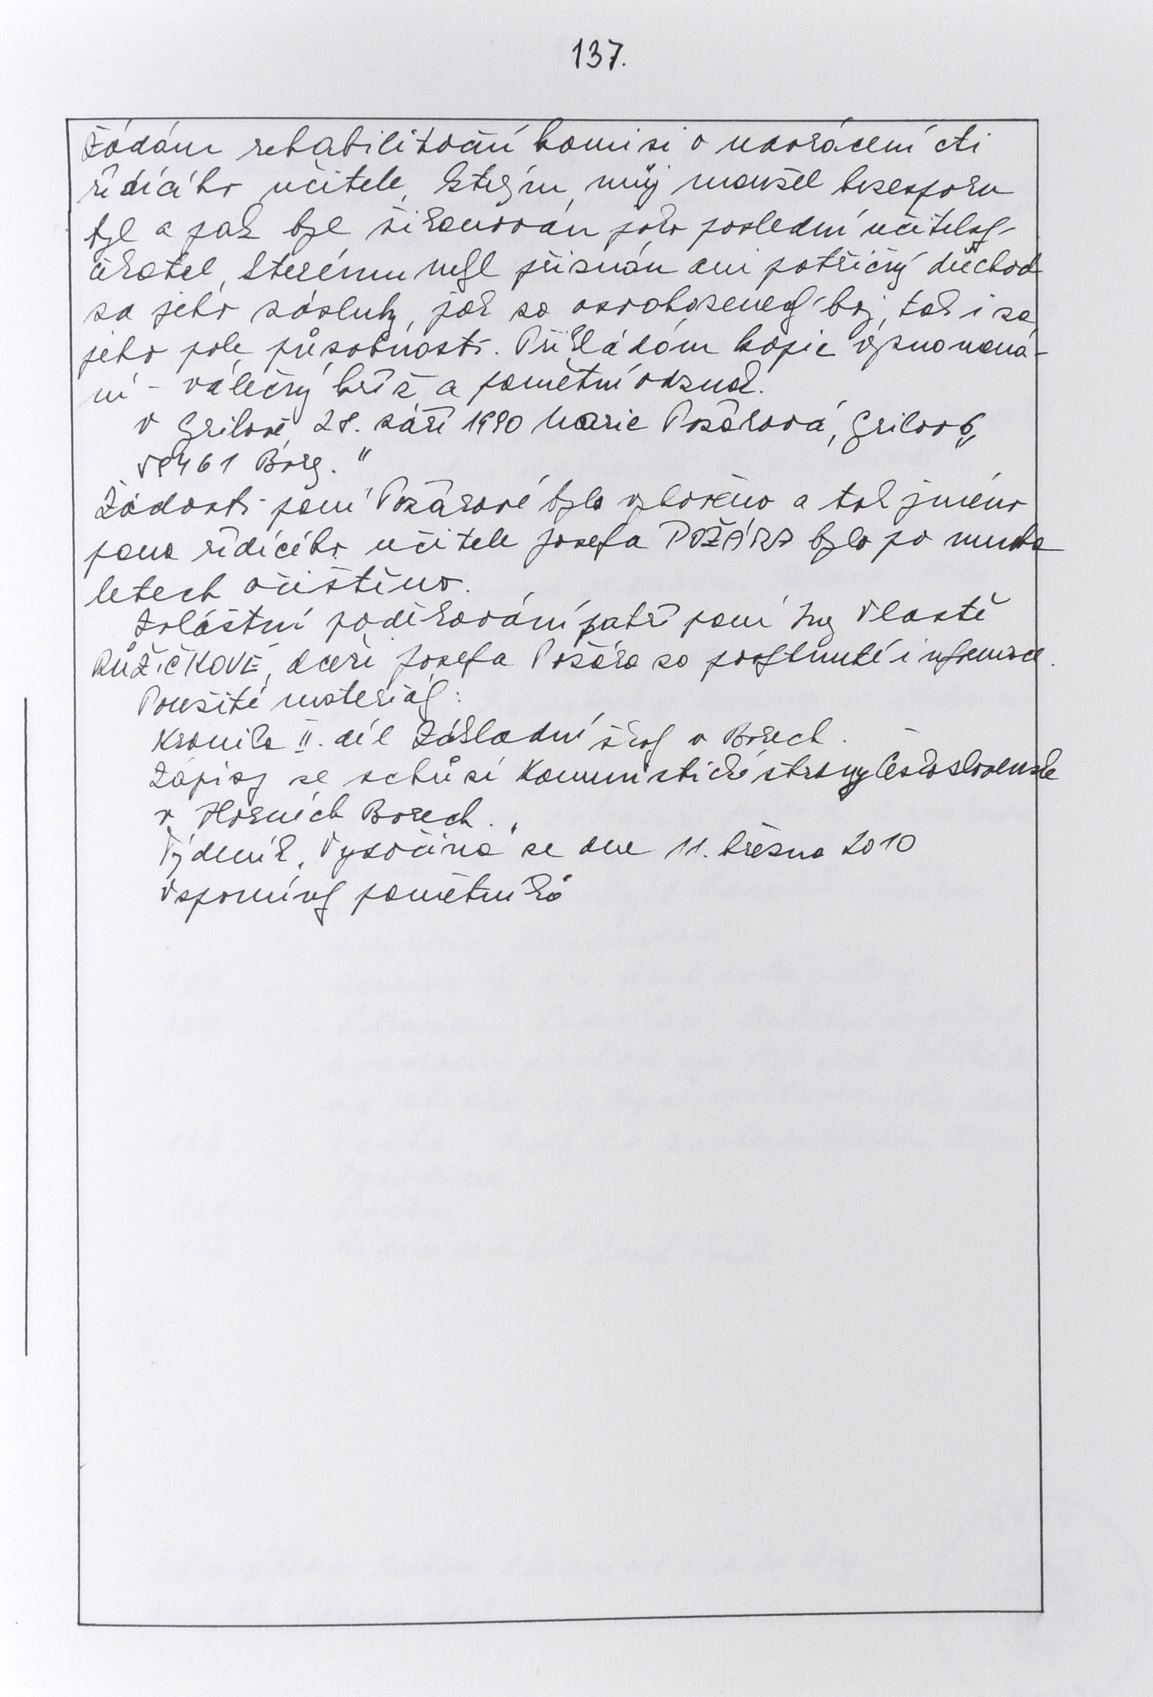 137.
Žádám rehabilitační komisi o navrácení cti
řídícího učitele, kterým můj manžel bezesporu
byl a pak byl šikanován jako poslední učitelský-
čekatel, kterému nebyl přiznán ani patřičný důchod
za jeho zásluhy, jak za osvobozenecký boj, tak i za
jeho pole působnosti. Přikládám kopie vyznamená-
ní - válečný kříž a pamětní odznak.
V Grilově, 28. září 1990 Marie Požárová, Grilov 6,
59461 Bory."
Žádosti paní Požárové bylo vyhověno a tak jméno
pana řídícího učitele Josefa POŽÁRA bylo po mnoha
letech očištěno.
Zvláštní poděkování patří paní Ing Vlastě
RŮŽIČKOVÉ, dceři Josefa Požára za poskytnuté informace.
Použité materiály:
Kronika II. díl Základní školy v Borech.
Zápisy ze schůzí Komunistické strany Československa
v Horních Borech.
Týdeník "Vysočina" ze dne 11. března 2010
Vzpomínky pamětníků